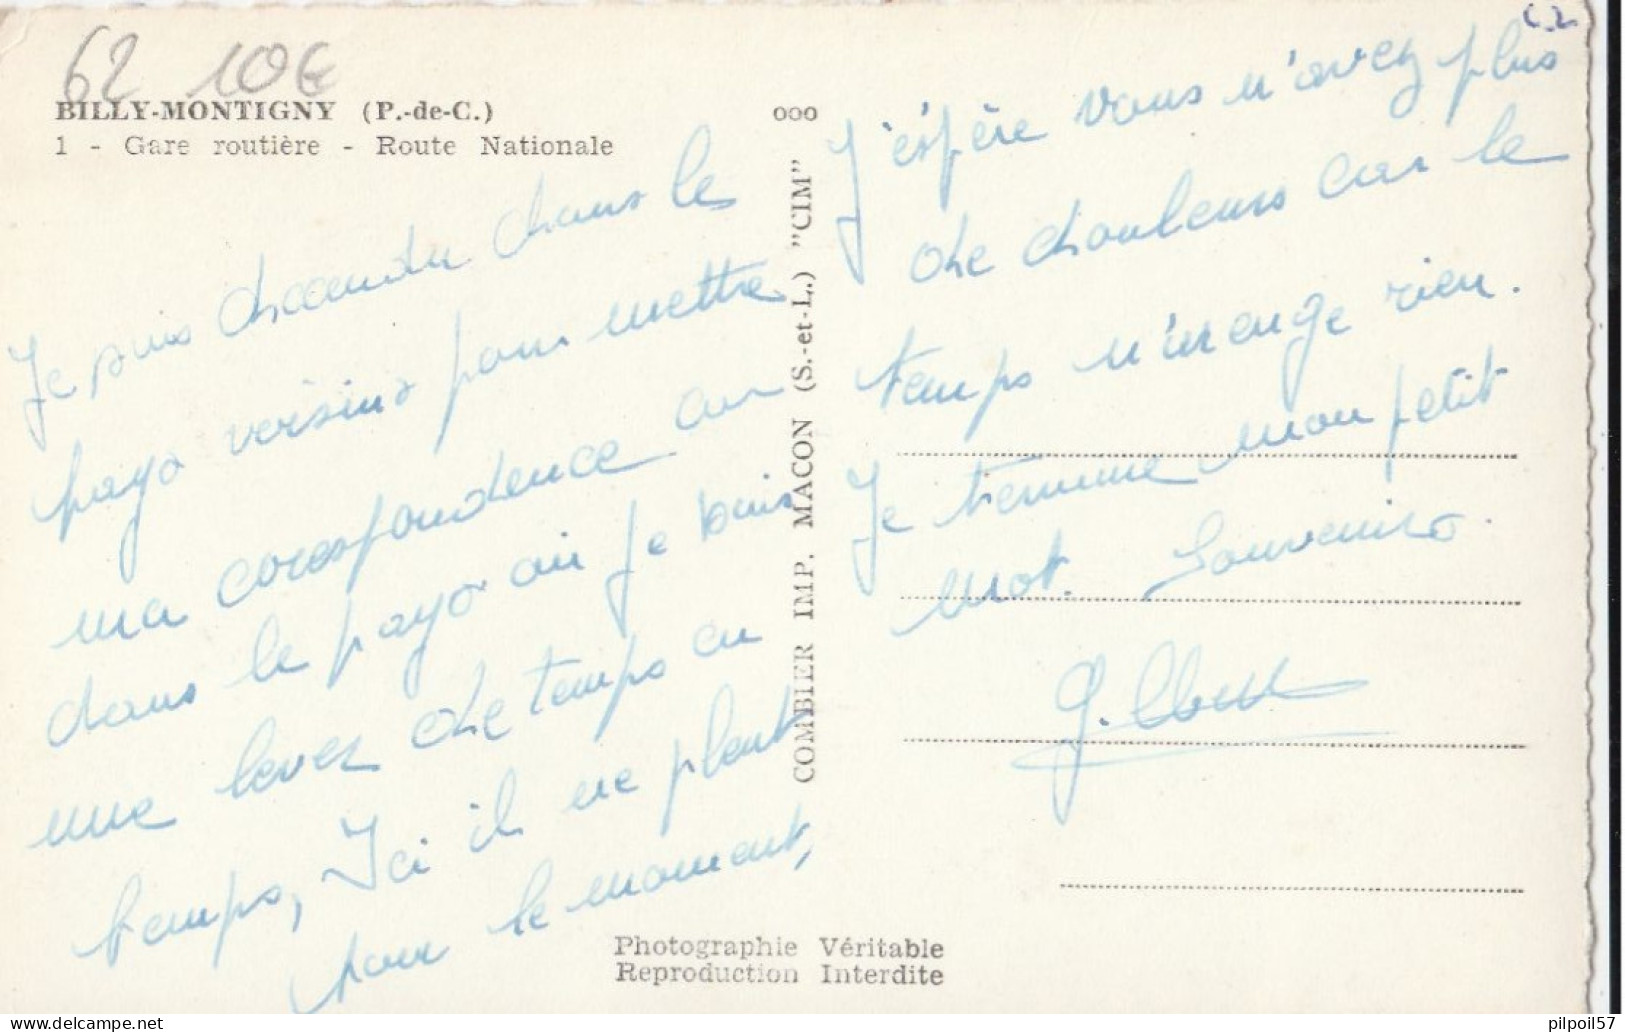 62 10€
BILLY-MONTIGNY (P.-de-C.)
1 - Gare routière - Route Nationale
Je suis descendu dans le
pays voisins pour mettre
ma corespondence car
dans le pays où je suis
une levez de temps en
temps, Ici il ne pleut
pour le moment,
COMBIER IMP. MACON (S.-et-L.) "CIM"
ooo
J'espère vous n'avez plus
de douleurs car le
temps n'arenge rien.
Je termine mon petit
mot. Souvenirs.
Gilbert
Photographie Véritable
Reproduction Interdite
pilpoil57